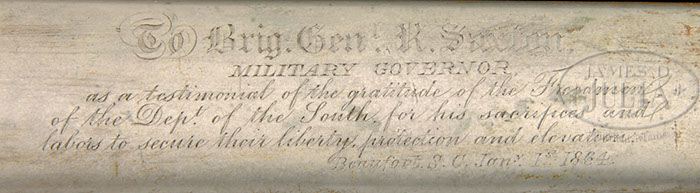 To Brig. Genl. R. Saxton.
MILITARY GOVERNOR
as a testimonial of the gratitude of the Freedmen
of the Dept. of the South, for his sacrifices and
labors to secure their liberty, protection and elevation.
Beaufort, S. C. Jany. 1st 1864.
JAMES D.
JULIA